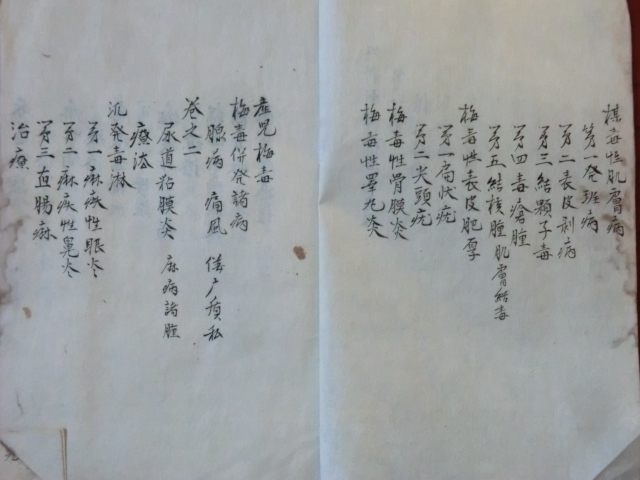 梅毒性肌膚病
第一発斑病
第二表皮剥病
第三結顆子毒
第四毒瘡腫
第五結核腫肌膚結毒
梅毒性表皮肥厚
第一扁状疣
第二尖頭疣
梅毒性骨膜炎
梅毒性睾丸炎
産児梅毒
梅毒併発諸病
腺病 痛風
巻之二
尿道粘膜炎 麻病諸腫
療法
汎発毒淋
第一麻疾性眼炎
第二麻疾性鼻炎
第三直腸麻
治療